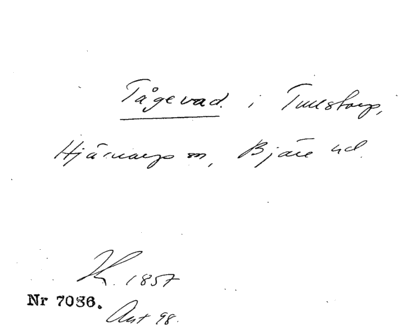 Tågevad. i Tullstorp,
Hjärnarps sn, Bjäre hd.
1857
Nr 7086.
Ant 98.